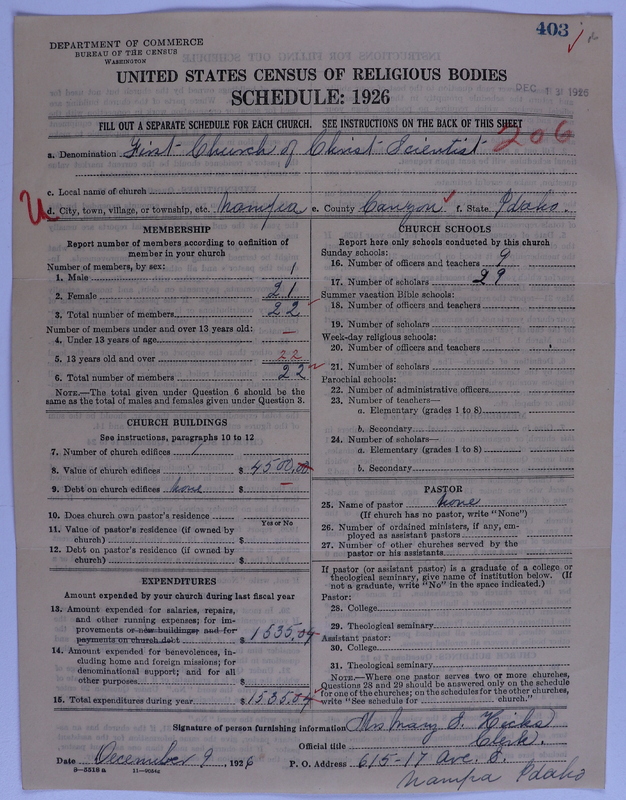 403
DEPARTMENT OF COMMERCE
BUREAU OF THE CENSUS
WASHINGTON
UNITED STATES CENSUS OF RELIGIOUS BODIES
SCHEDULE: 1926
DEC 13 1926
FILL OUT A SEPARATE SCHEDULE FOR EACH CHURCH. SEE INSTRUCTIONS ON THE BACK OF THIS SHEET
206
a. Denomination First Church of Christ Scientist
c. Local name of church
d. City, town, village, or township, etc. Nampa e. County Canyon f. State Idaho.
MEMBERSHIP
Report number of members according to definition of member in your church
Number of members, by sex:
1. Male 1
2. Female 21
3. Total number of members 22
Number of members under and over 13 years old:
4. Under 13 years of age —
5. 13 years old and over 22
6. Total number of members 22
NOTE.—The total given under Question 6 should be the same as the total of males and females given under Question 3.
CHURCH BUILDINGS
See instructions, paragraphs 10 to 12
7. Number of church edifices 1
8. Value of church edifices $ 4500.00
9. Debt on church edifices none $ —
10. Does church own pastor's residence
Yes or No
11. Value of pastor's residence (if owned by church) $
12. Debt on pastor's residence (if owned by church) $
EXPENDITURES
Amount expended by your church during last fiscal year
13. Amount expended for salaries, repairs,
and other running expenses; for im-
provements or new buildings; and for
payments on church debt $ 1535.04
14. Amount expended for benevolences, in-
cluding home and foreign missions; for
denominational support; and for all
other purposes $
15. Total expenditures during year $ 1535.04
CHURCH SCHOOLS
Report here only schools conducted by this church
Sunday schools:
16. Number of officers and teachers 9
17. Number of scholars 29
Summer vacation Bible schools:
18. Number of officers and teachers
19. Number of scholars
Week-day religious schools:
20. Number of officers and teachers
21. Number of scholars
Parochial schools:
22. Number of administrative officers
23. Number of teachers—
a. Elementary (grades 1 to 8)
b. Secondary
24. Number of scholars—
a. Elementary (grades 1 to 8)
b. Secondary
PASTOR
25. Name of pastor none
(If church has no pastor, write "None")
26. Number of ordained ministers, if any, em-
ployed as assistant pastors
27. Number of other churches served by the
pastor or his assistants
If pastor (or assistant pastor) is a graduate of a college or
theological seminary, give name of institution below. (If
not a graduate, write "No" in the space indicated.)
Pastor:
28. College
29. Theological seminary
Assistant pastor:
30. College
31. Theological seminary
NOTE.—Where one pastor serves two or more churches,
Questions 28 and 29 should be answered only on the schedule
for one of the churches; on the schedules for the other churches,
write "See schedule for church."
Signature of person furnishing information Mrs Mary E. Hicks
Official title Clerk.
Date December 9, 1926 P. O. Address 615-17 Ave. S.
9-5518 a 11-9064a
Nampa Idaho